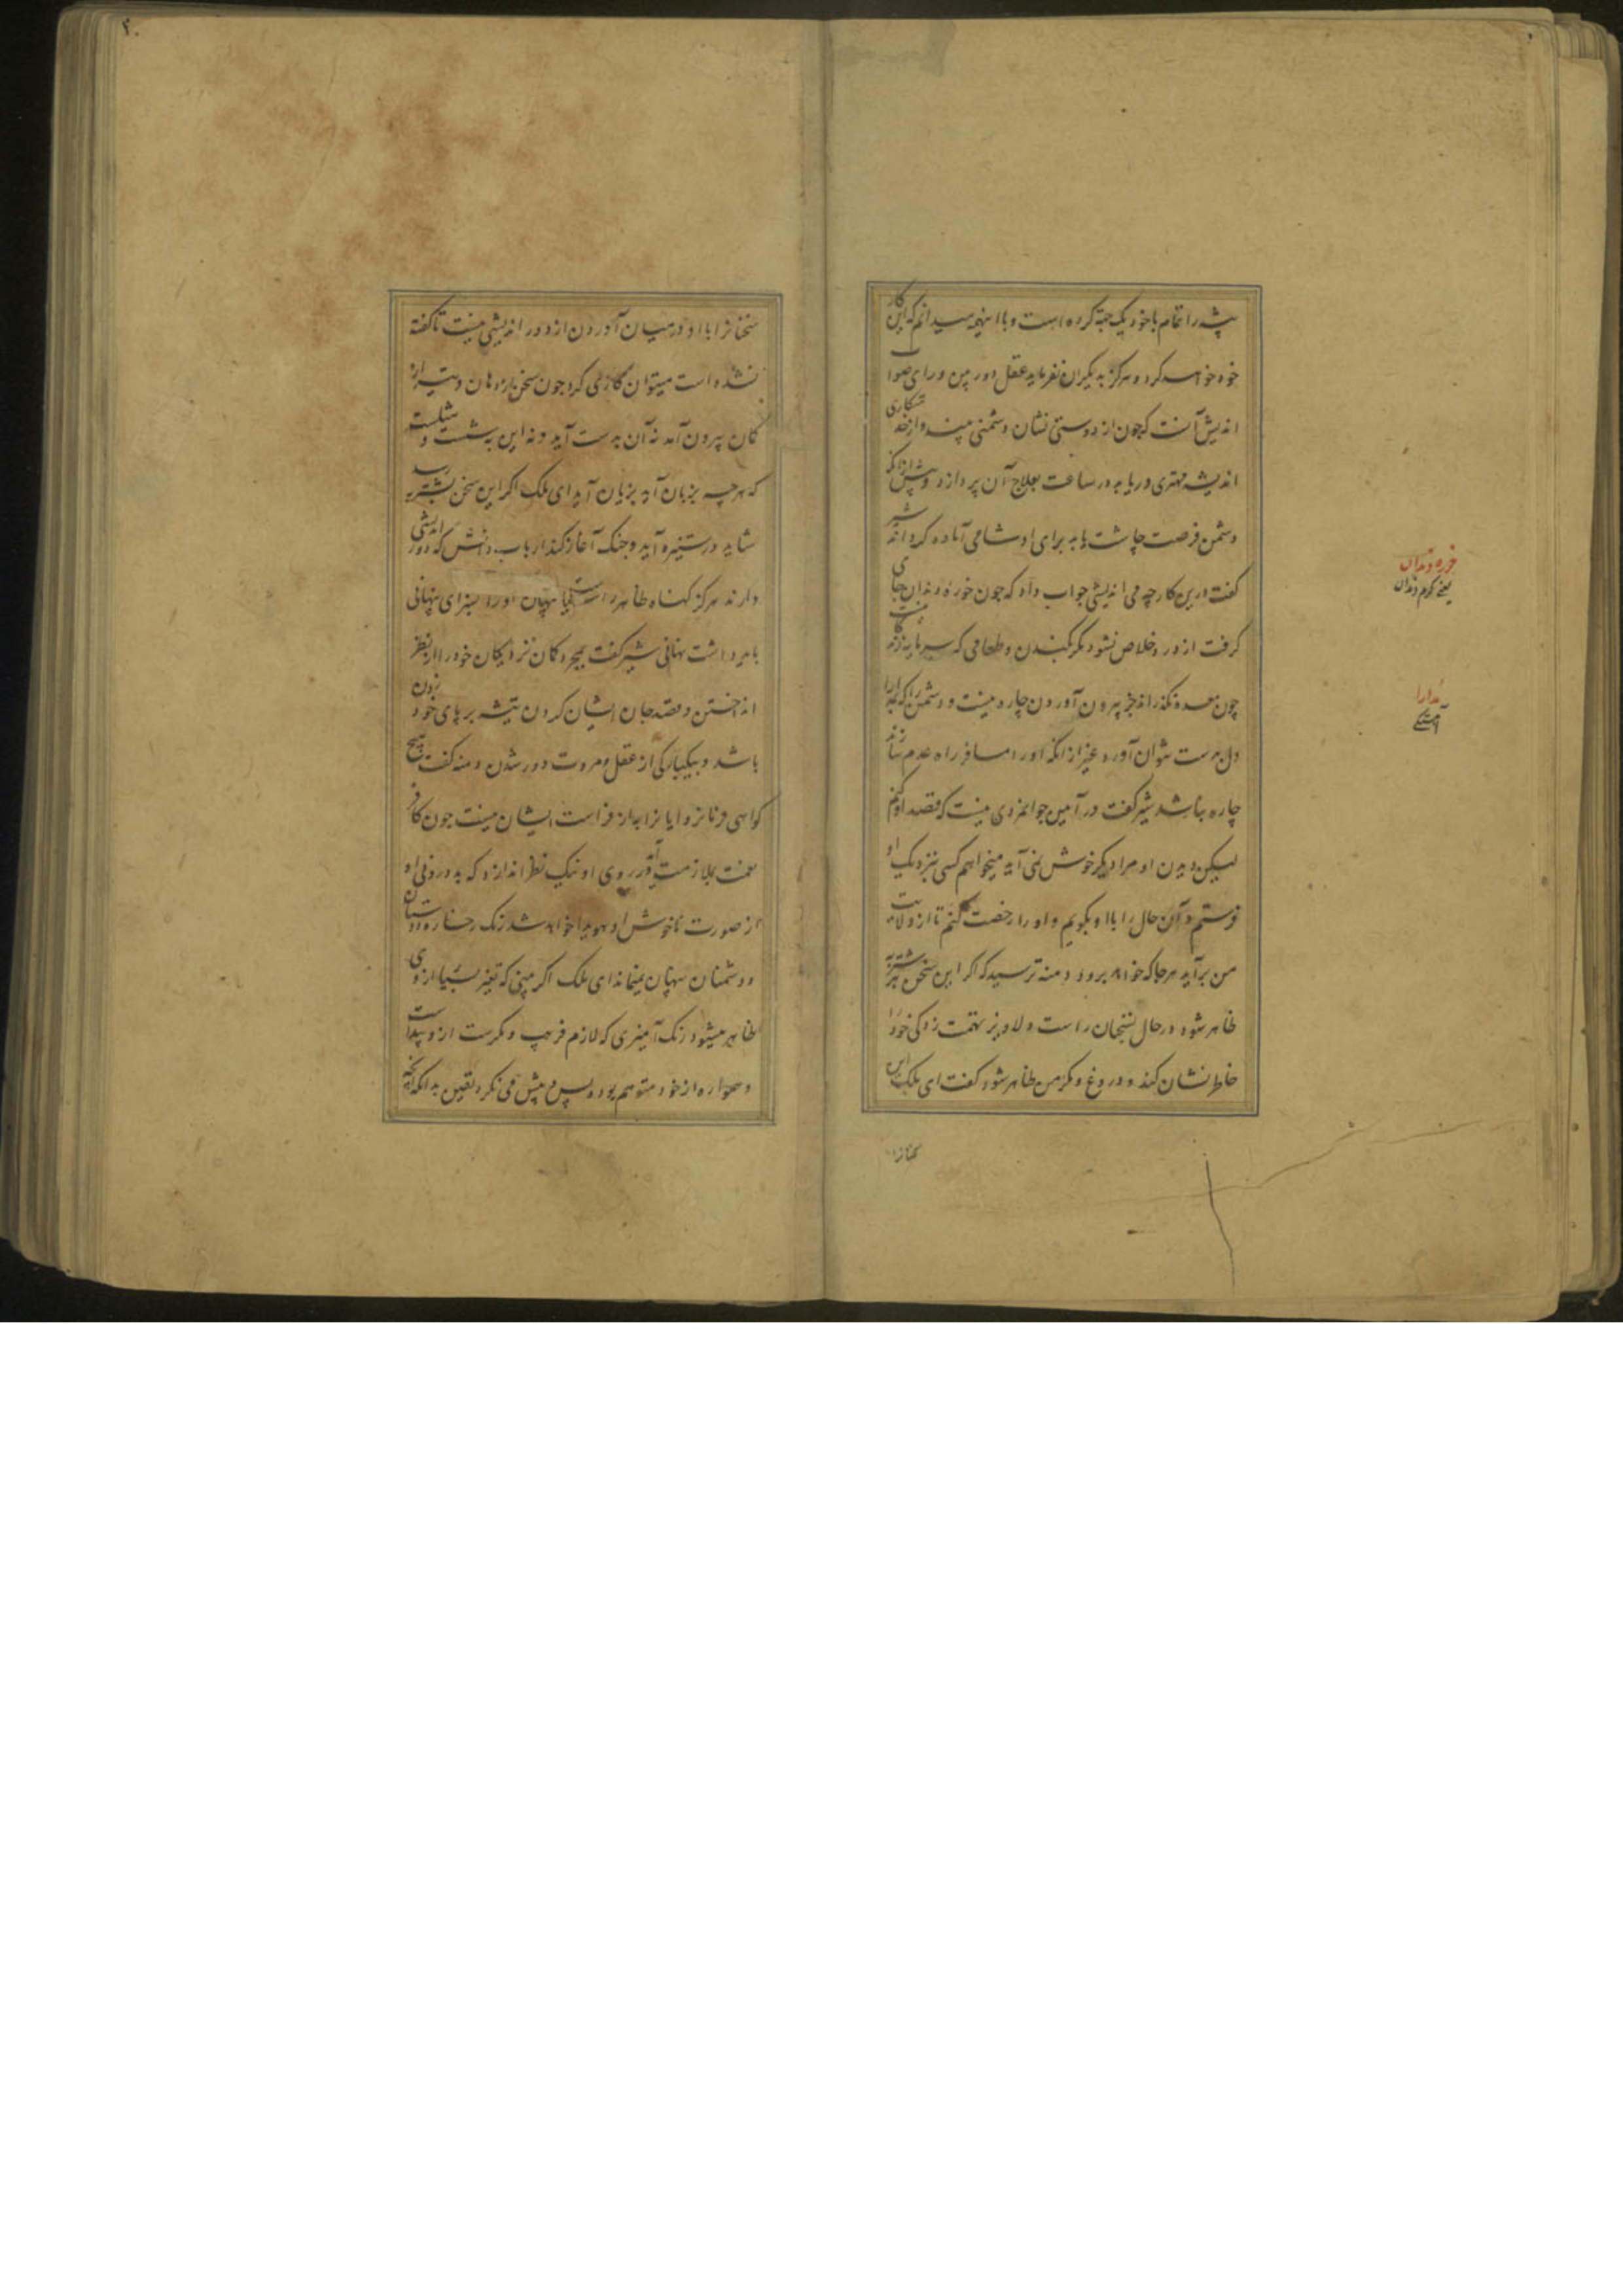 پیشه را تمام با خود یک جهة کرده است و با اینهمه میدانم که این کار
خود خواهد کرد و هرگز به دیگران نفرماید عقل دور بین و رای صواب
اندیش آنست که چون از دوستی نشان دشمنی بیند و از خدمتکاری
اندیشه مهتری دریابد در ساعت بعلاج آن پردازد و پیش از آنکه
دشمن فرصت چاشت یابد برای او شامی آماده گرداند شیر
گفت درین کار چه می اندیشی جواب داد که چون خوره دندان جای
گرفت از درد خلاص نشود مگر بکندن و طعامی که سرمایه زندگانیست
چون معده نگذراند جز بیرون آوردن چاره نیست و دشمن را که بمدارا
دل بدست نتوان آورد غیر از انکه او را مسافر راه عدم سازند
چاره نباشد شیر گفت در آیین جوانمردی نیست که قصد او کنم
لیکن دیدن او مرا دیگر خوش نمی آید میخواهم کسی نزدیک او
فرستم و آن حال را با او بگویم و او را رخصت کنم تا از ولایت
من برآید هر جا که خواهد برود دمنه ترسید که اگر این سخن بشنزبه
ظاهر شود در حال بسخنان راست و لاویز تهمت زدگی خود را
خاطر نشان کند و دروغ و مکر من ظاهر شود گفت ای ملک این
سخنانرا
خوره دندان
یعنی کرم دندان
مدارا
آهستگی
۲۰
سخنانرا با او در میان آوردن از دور اندیشی نیست تا گفته
نشده است میتوان کاری کرد چون سخن از دهان و تیر از
کمان بیرون آمد نه آن بدست آید و نه این به شست و شکست
که هر چه بزبان آید بزیان آید ای ملک اگر این سخن بشنزبه رسد
شاید در ستیزه آید و جنگ آغاز کند ارباب دانش که دور اندیشی
دارند هرگز گناه ظاهر را سزای پنهان و را سزای پنهانی
باید داشت نهانی شیر گفت بمجرد گمان نزدیکان خود را از نظر
انداختن و قصد جان ایشان کردن تیشه بر پای خود زدن
باشد و بیکبارگی از عقل و مروت دور شدن دمنه گفت هیچ
گواهی فرمانروایانرا به از فراست ایشان نیست چون کافر
نعمت بملازمت آید در روی او نیک نظر اندازد که بد درونی او
از صورت ناخوش او هویدا خواهد شد رنگ رخساره دوستان
و دشمنان پنهان نمیماند ای ملک اگر بینی که تغیر بسیار از وی
ظاهر میشود رنگ آمیزی که لازم فریب و مکرست ازو پیداست
و همواره از خود متوهم بوده پس و پیش می نگرد یقین بدانکه آنچه